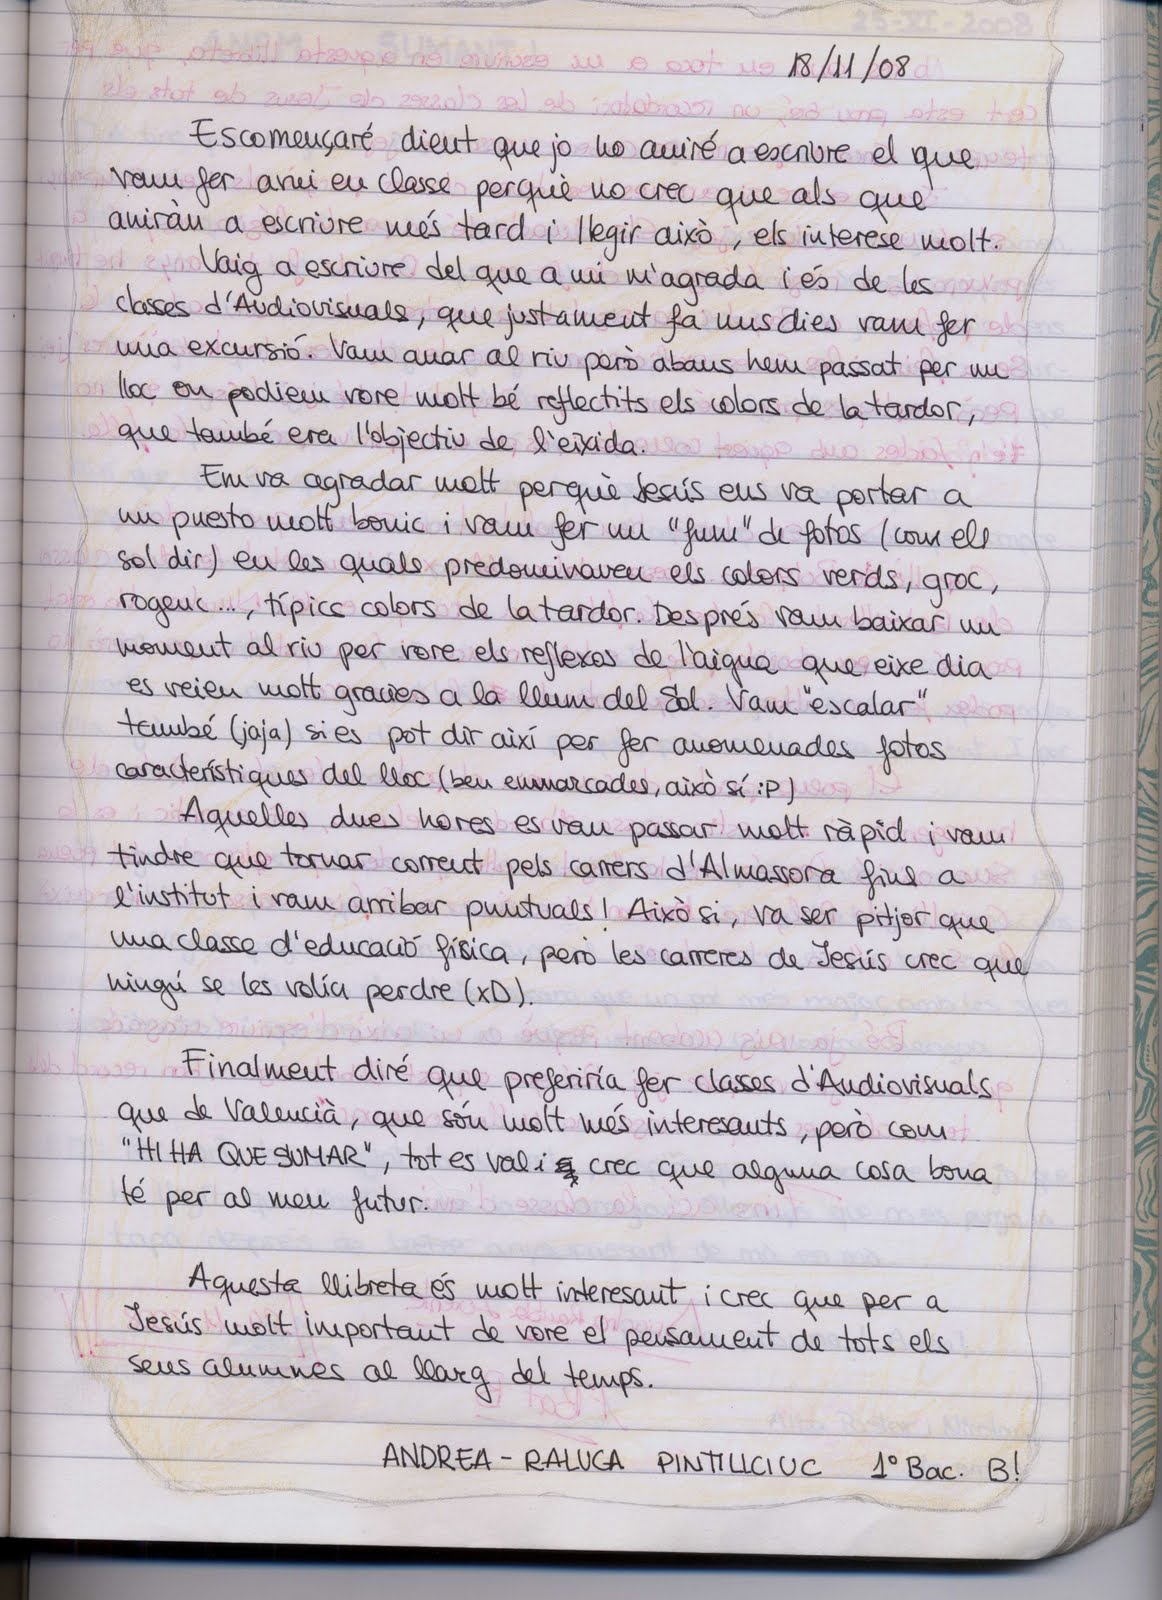 18/11/08
Escomençaré dient que jo no aniré a escriure el que
vam fer avui en classe perquè no crec que als que
aniràn a escriure més tard i llegir això, els interese molt.
Vaig a escriure del que a mi m'agrada i és de les
classes d'Audiovisuals, que justament fa uns dies vam fer
una excursió. Vam anar al riu però abans hem passat per un
lloc on podiem vore molt bé reflectits els colors de la tardor,
que també era l'objectiu de l'eixida.
Em va agradar molt perquè Jesús ens va portar a
un puesto molt bonic i vam fer un "fum" de fotos (com ell
sol dir) en les quals predominaven els colors verds, groc,
rogenc..., típics colors de la tardor. Després vam baixar un
moment al riu per vore els reflexos de l'aigua que eixe dia
es veien molt gracies a la llum del Sol. Vam "escalar"
també (jaja) si es pot dir així per fer anomenades fotos
característiques del lloc (ben enmarcades, això sí :P)
Aquelles dues hores es van passar molt ràpid i vam
tindre que tornar corrent pels carrers d'Almassora fins a
l'institut i vam arribar puntuals! Això si, va ser pitjor que
una classe d'educació física, però les carreres de Jesús crec que
ningú se les volía perdre (xD).
Finalment diré que preferiría fer classes d'Audiovisuals
que de Valencià, que són molt més interesants, però com
"HI HA QUE SUMAR", tot es val i crec que alguna cosa bona
té per al meu futur.
Aquesta llibreta és molt interesant i crec que per a
Jesús molt important de vore el pensament de tots els
seus alumnes al llarg del temps.
ANDREA - RALUCA PINTILICIUC 1º Bac. B!